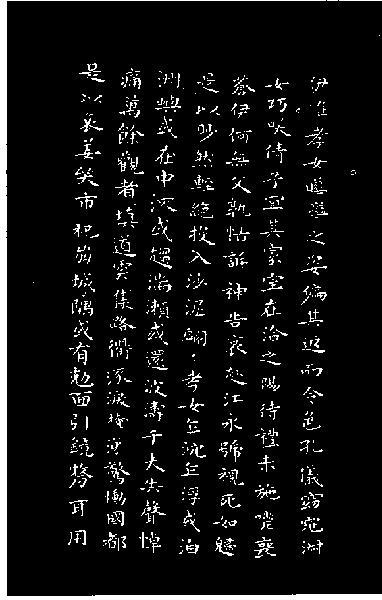 伊惟孝女曅曅之姿偏其返而令色孔儀窈窕淑
女巧咲倩兮宜其家室在洽之陽待禮未施嗟喪
蒼伊何無父孰怙訴神告哀赴江永號視死如歸
是以眇然輕絕投入沙泥翩〻孝女乍沉乍浮或泊
洲嶼或在中流或趨湍瀨或還波濤千夫失聲悼
痛萬餘觀者填道雲集路衢流淚掩涕驚慟國都
是以哀姜哭市杞崩城隅或有剋面引鏡剺耳用